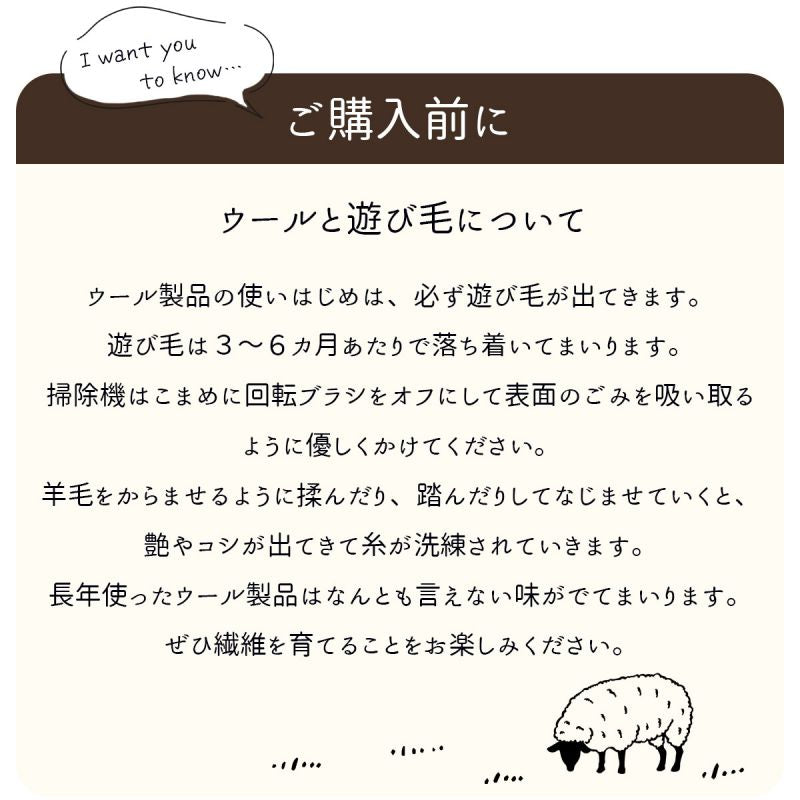 I want you
to know...
ご購入前に
ウールと遊び毛について
ウール製品の使いはじめは、必ず遊び毛が出てきます。
遊び毛は３〜６カ月あたりで落ち着いてまいります。
掃除機はこまめに回転ブラシをオフにして表面のごみを吸い取る
ように優しくかけてください。
羊毛をからませるように揉んだり、踏んだりしてなじませていくと、
艶やコシが出てきて糸が洗練されていきます。
長年使ったウール製品はなんとも言えない味がでてまいります。
ぜひ繊維を育てることをお楽しみください。